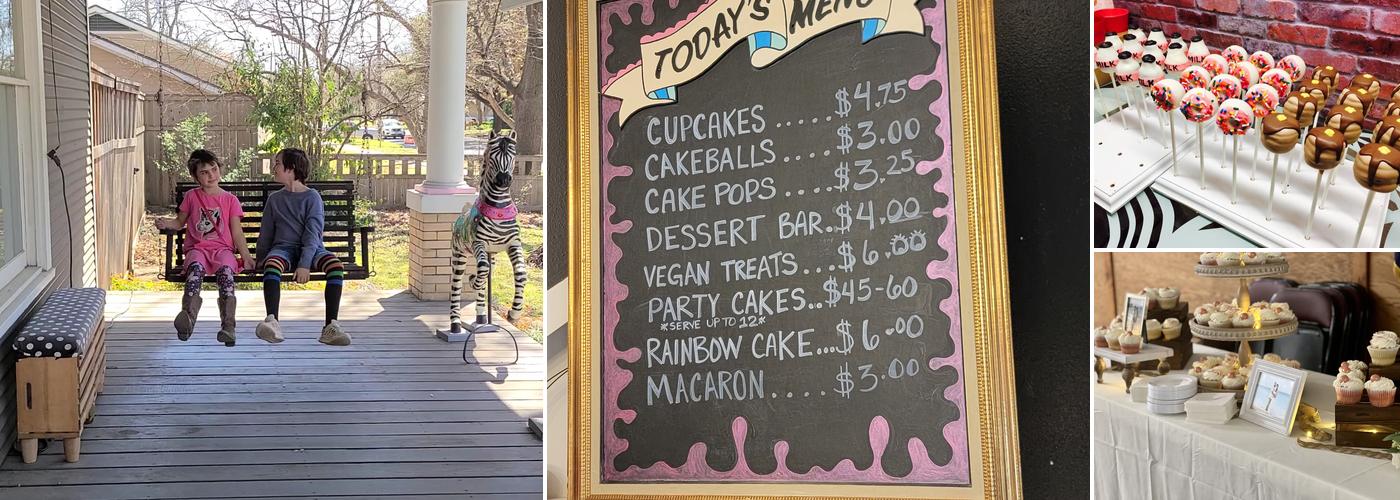 TODAY'S MENU
CUPCAKES.....$4.75
CAKEBALLS....$3.00
CAKE POPS....$3.25
DESSERT BAR.$4.00
VEGAN TREATS...$6.00
PARTY CAKES..$45-60
*SERVE UP TO 12*
RAINBOW CAKE...$6.00
MACARON....$3.00
MILK
MILK
MILK
MILK